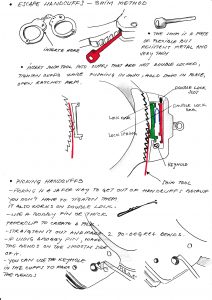 • ESCAPE HANDCUFFS - SHIM METHOD
INSERTS HERE
• THE SHIM IS A PIECE
OF FLEXIBLE BUT
RESISTENT METAL AND
VERY THIN
• INSERT SHIM TOOL INTO CUFFS THAT ARE NOT DOUBLE LOCKED,
TIGHTEN CUFFS WHILE PUSHING IN SHIM, HOLD SHIM IN PLACE,
OPEN RATCHET ARM.
DOUBLE LOCK
SLOT
DOUBLE LOCK
BAR
LOCK BAR
LOCK SPRING
KEYHOLE
SHIM TOOL
• PICKING HANDCUFFS
- PICKING IS A SAFER WAY TO GET OUT OF HANDCUFFS BECAUSE
YOU DON'T HAVE TO TIGHTEN THEM
- IT ALSO WORKS ON DOUBLE LOCK.
- USE A BOBBY PIN OR THICK
PAPERCLIP TO CREATE A PICK
- STRAIGHTEN IT OUT AND MAKE 2 90-DEGREE BENDS.
- IF USING A BOBBY PIN, MAKE
THE BENDS ON THE SMOOTH SIDE
OF IT.
- YOU CAN USE THE KEYHOLE
IN THE CUFFS TO MAKE
THE BENDS